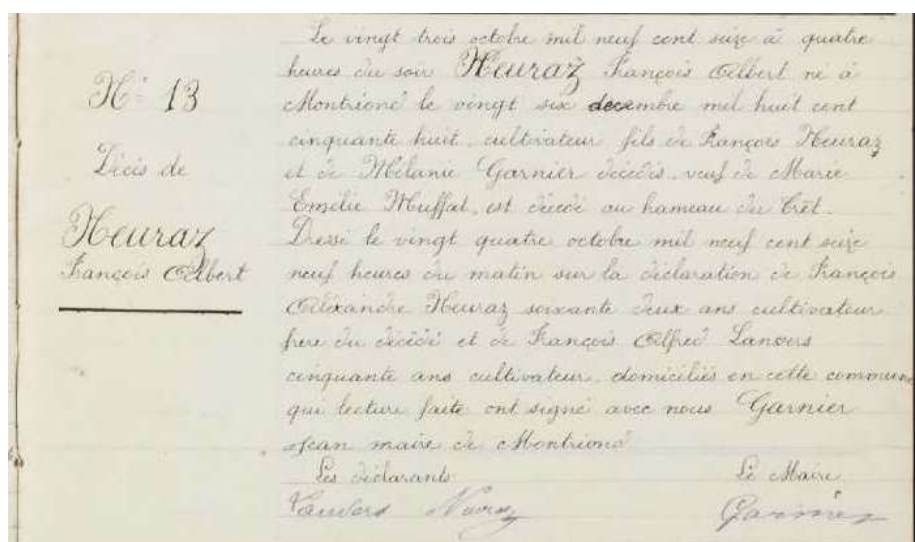 N° 13
Décès de
Neuraz
François Albert
Le vingt trois octobre mil neuf cent seize à quatre
heures du soir Neuraz François Albert né à
Montriond le vingt six decembre mil huit cent
cinquante huit, cultivateur fils de François Neuraz
et de Mélanie Garnier décédés, veuf de Marie
Emélie Muffat, est décédé au hameau du Crêt.
Dressé le vingt quatre octobre mil neuf cent seize
neuf heures du matin sur la déclaration de François
Alexandre Neuraz soixante deux ans cultivateur
frère du décédé et de François Alfred Lanvers
cinquante ans cultivateur, domiciliés en cette commune
qui lecture faite ont signé avec nous Garnier
Jean maire de Montriond
Les déclarants Le Maire
Lanvers Neuraz Garnier